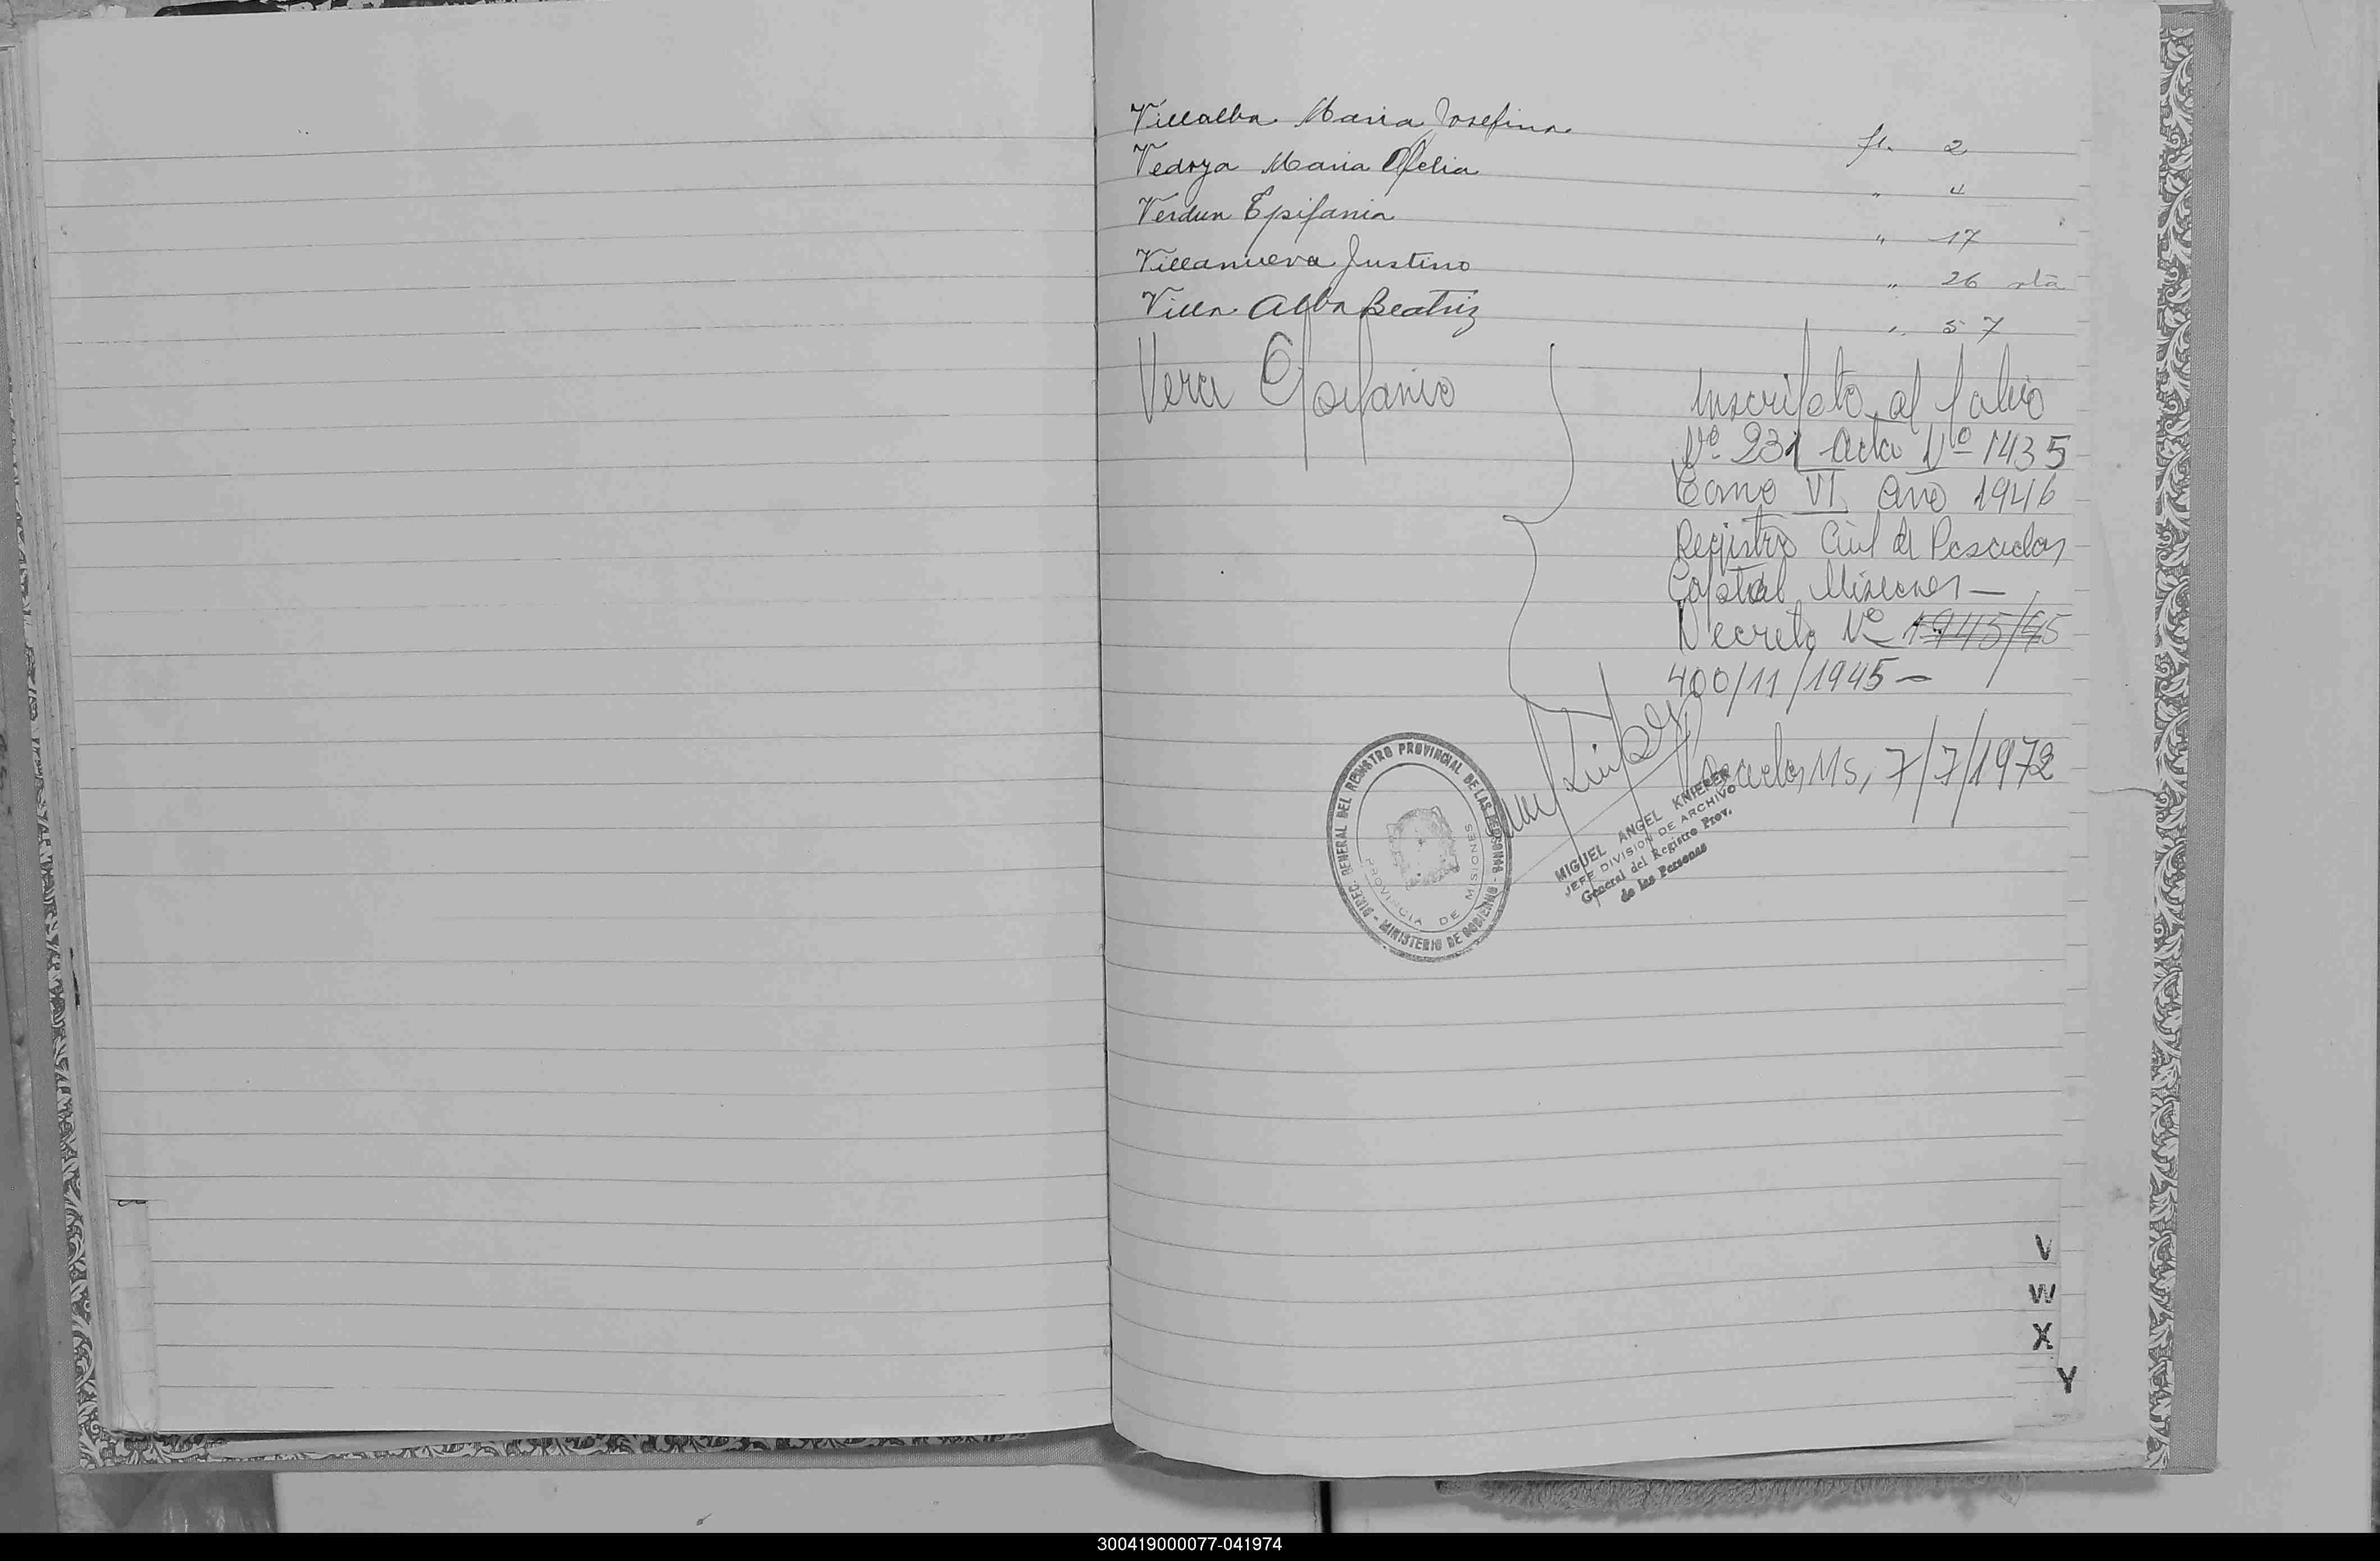 Villalba Maria Josefina fl. 2
Vedoya Maria Ofelia " 4
Verdun Epifania " 17
Villanueva Justino " 26 vta
Villa Alba Beatriz " 57
Vera Epifanio
Inscripto al folio
Nº 231 Acta Nº 1435
Tomo VI Año 1946
Registro Civil de Posadas
Capital Misiones —
Decreto Nº 1945/45
400/11/1945 —
Posadas, Ms, 7/7/1972
DIREC. GENERAL DEL REGISTRO PROVINCIAL DE LAS PERSONAS - MINISTERIO DE GOBIERNO -
PROVINCIA DE MISIONES
MIGUEL ANGEL KNIERER
JEFE DIVISION DE ARCHIVO
General del Registro Prov.
de las Personas
V
W
X
Y
300419000077-041974